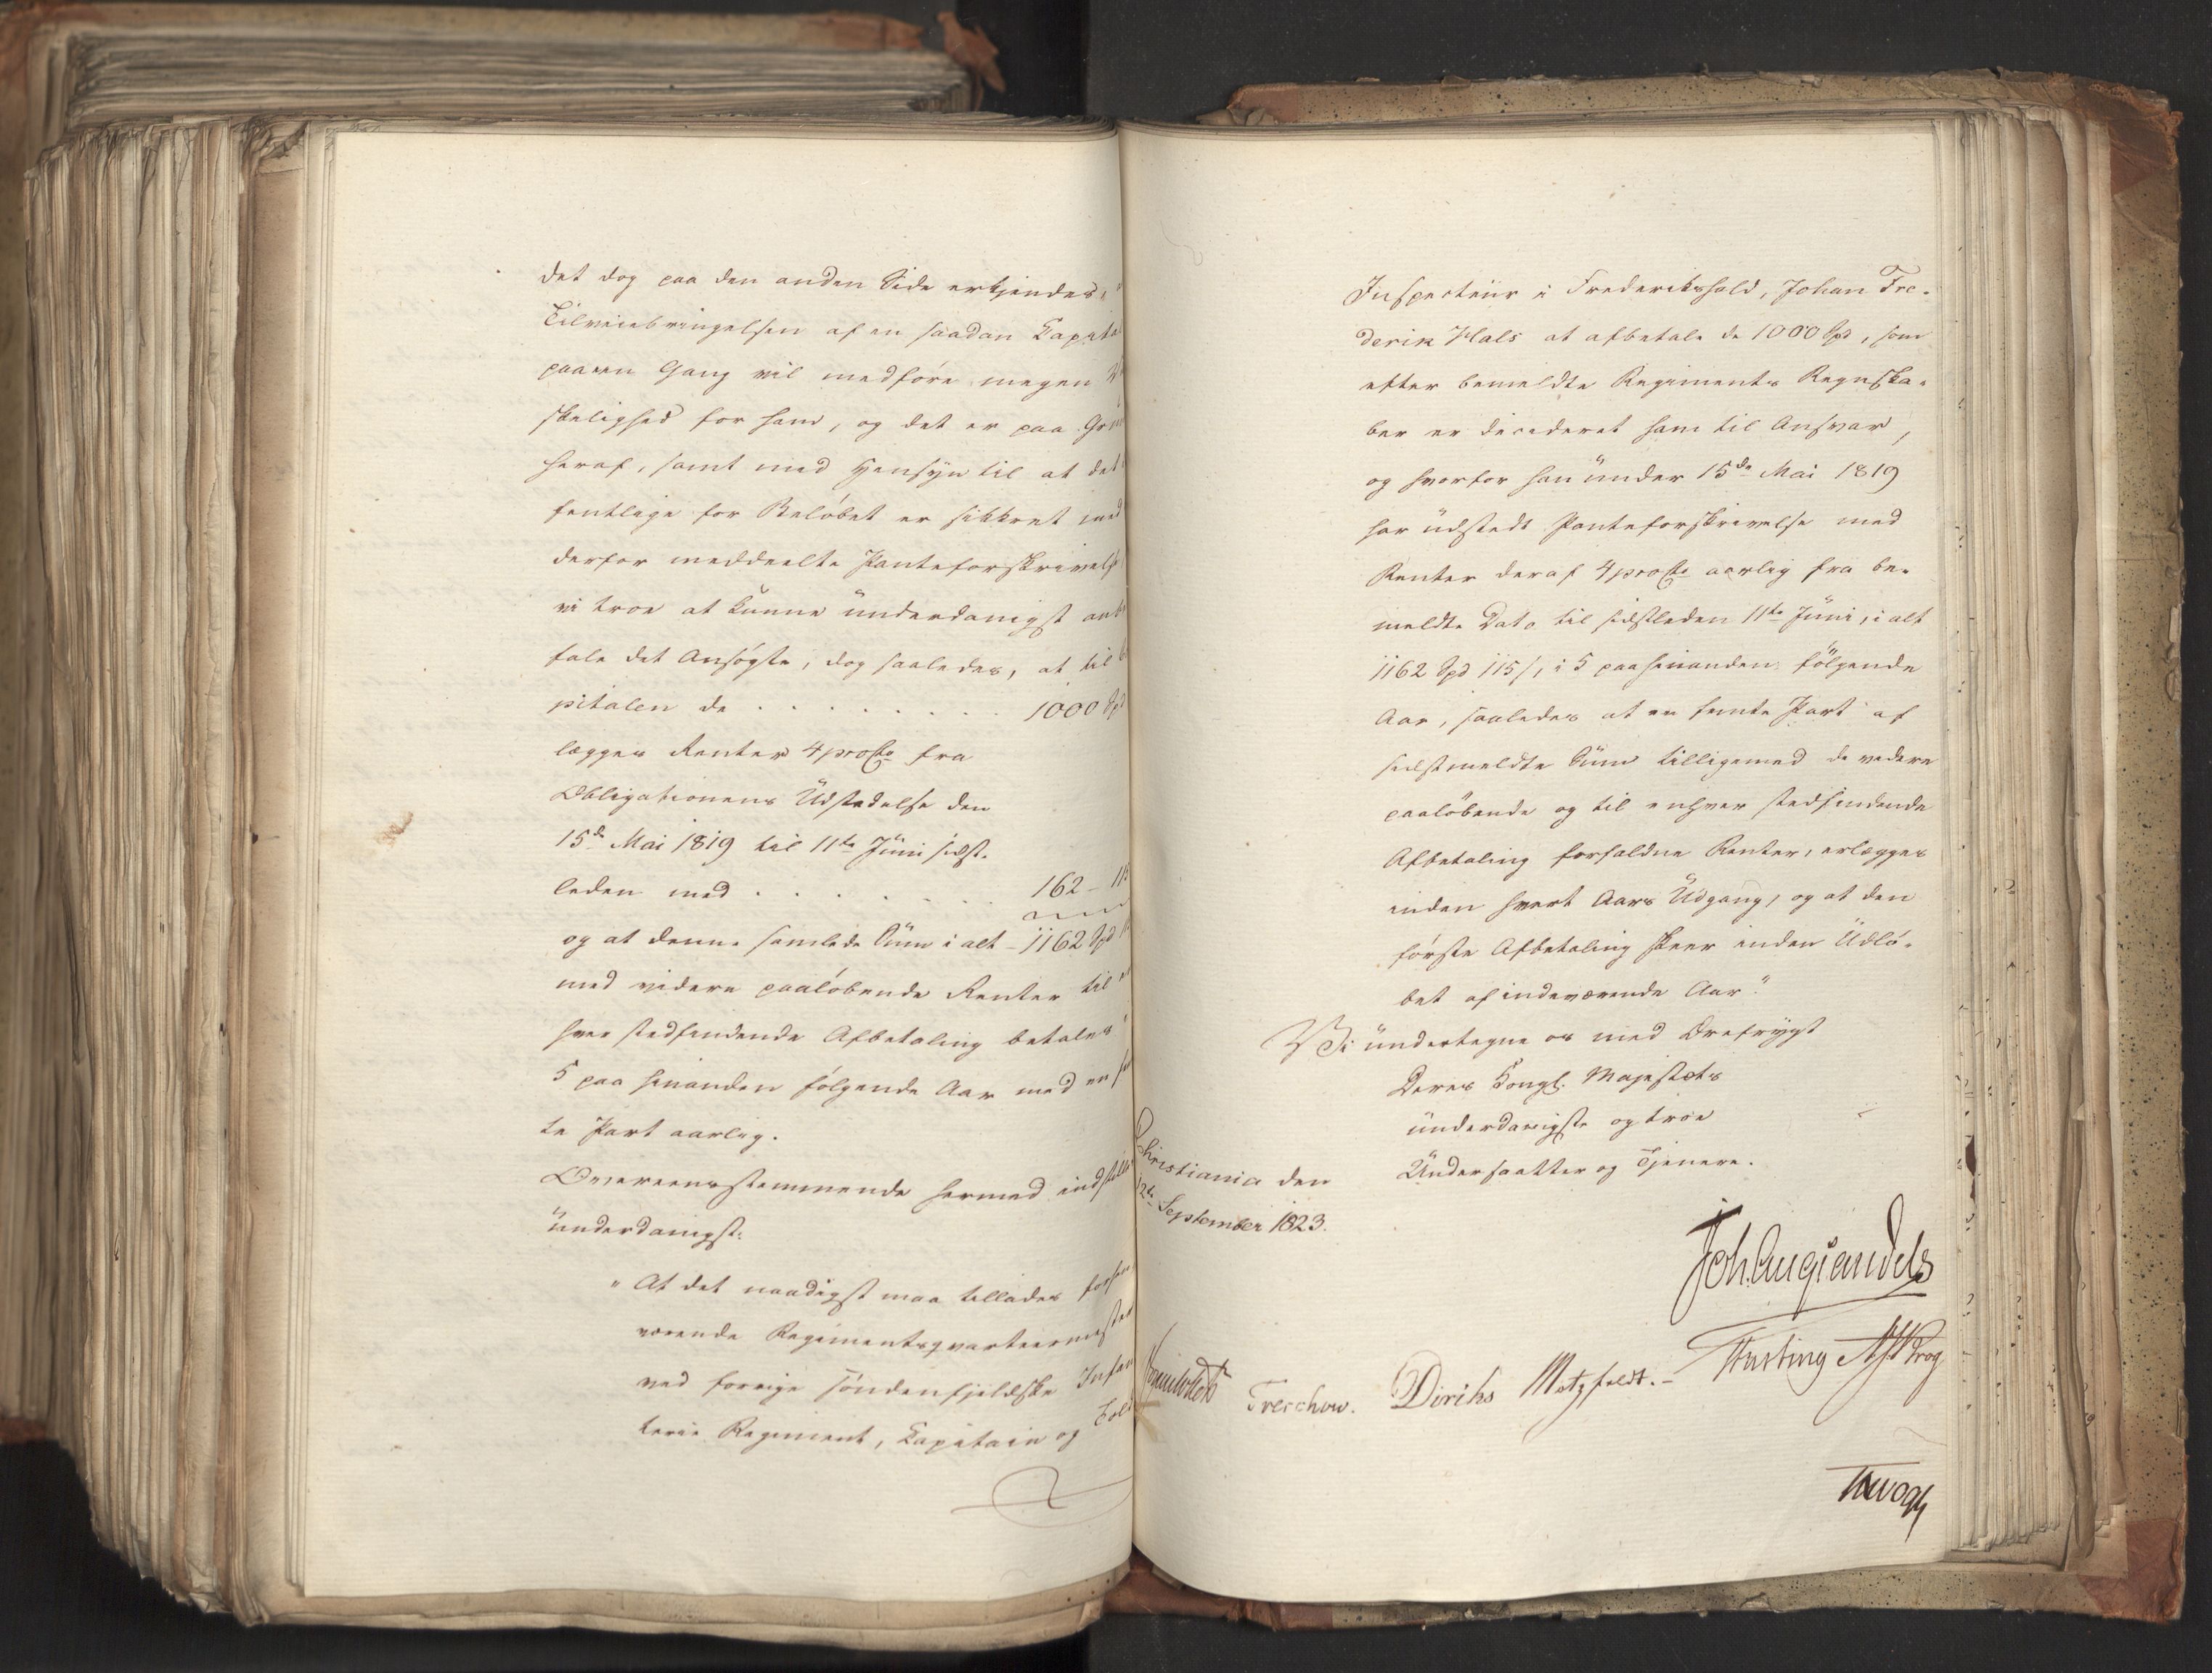 det dog paa den anden Side erkjendes,
Tilveiebringelsen af en saadan Kapital
paa een Gang vil medføre megen
skelighed for ham, og det er paa Grund
heraf, samt med Hensyn til at det
fentlige for Beløbet er sikkret med
derfor meddeelte Panteforskrivelse
vi troe at kunne underdanigst anbe
fale det Ansøgte, dog saaledes, at til
pitalen de . . . . . . . . 1000 Spd
lægges Renter 4 proCto fra
Obligationens Udstedelse den
15de Mai 1819 til 11te Juni sidst-
leden med . . . . . . 162 – 115
og at denne samlede Sum i alt – 1162 Spd
med videre paaløbende Renter til
hver stedfindende Afbetaling betales
5 paa hinanden følgende Aar med en fem
te Part aarlig.
Overeensstemmende hermed indstilles
underdanigst:
"At det naadigst maa tillades forhen
værende Regimentsqvarteermester
ved forrige søndenfjeldske Infan
terie Regiment, Kapitain og Told
Inspecteur i Frederikshald, Johan Fre-
derik Hals at afbetale de 1000 Spd, som
efter bemeldte Regiments Regnska-
ber er decideret ham til Ansvar,
og hvorfor han under 15de Mai 1819
har udstedt Panteforskrivelse med
Renter deraf 4 proCto aarlig fra be-
meldte Dato til sidstleden 11te Juni, i alt
1162 Spd 115 s, i 5 paa hinanden følgende
Aar, saaledes at en femte Part af
sidstmeldte Sum tilligemed de videre
paaløbende og til enhver stedfindende
Afbetaling forfaldne Renter, erlægges
inden hvert Aars Udgang, og at den
første Afbetaling skeer inden Udlø-
bet af indeværende Aar."
Vi undertegne os med Ærefrygt
Deres Kongl. Majestæts
underdanigste og troe
Undersaatter og Tjenere.
Christiania den
12te September 1823.
Joh. Aug. Sandels
Sommerhielm Treschow. Diriks Motzfeldt. – Fasting A.S. Krog
Th. Vogt